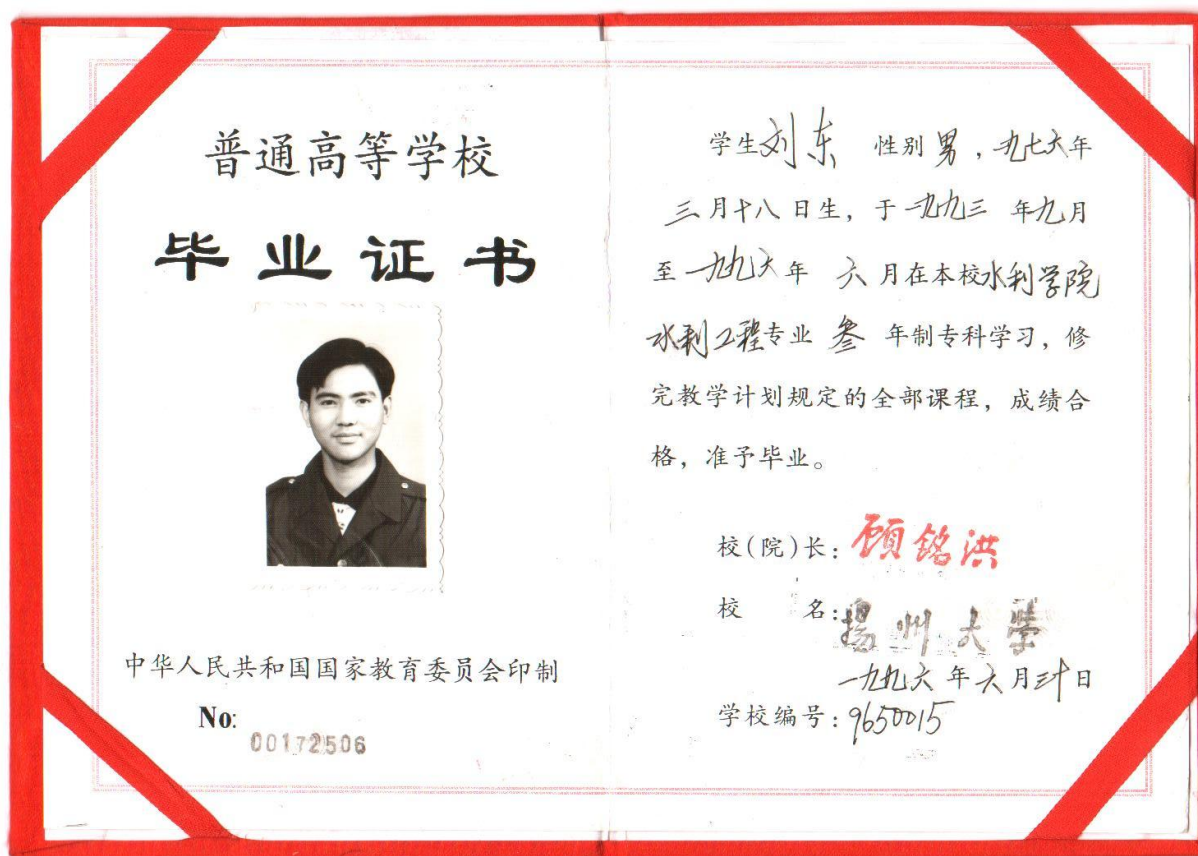 普通高等学校
毕业证书
中华人民共和国国家教育委员会印制
No:
00172506
学生刘东 性别男，一九七六年
三月十八日生，于一九九三年九月
至一九九六年 六月在本校水利学院
水利工程专业 叁 年制专科学习，修
完教学计划规定的全部课程，成绩合
格，准予毕业。
校(院)长：顾铭洪
校 名：扬州大学
一九九六年六月三十日
学校编号：9650015